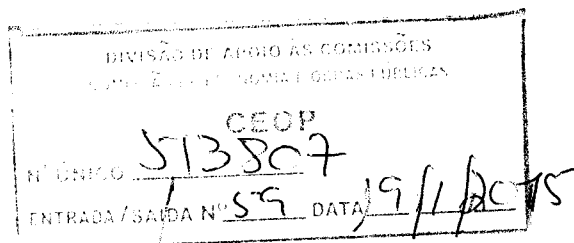 DIVISÃO DE APOIO ÀS COMISSÕES
E OBRAS PÚBLICAS
CEOP
Nº ÚNICO 513807
ENTRADA / SAÍDA Nº 59 DATA 19/1/2015